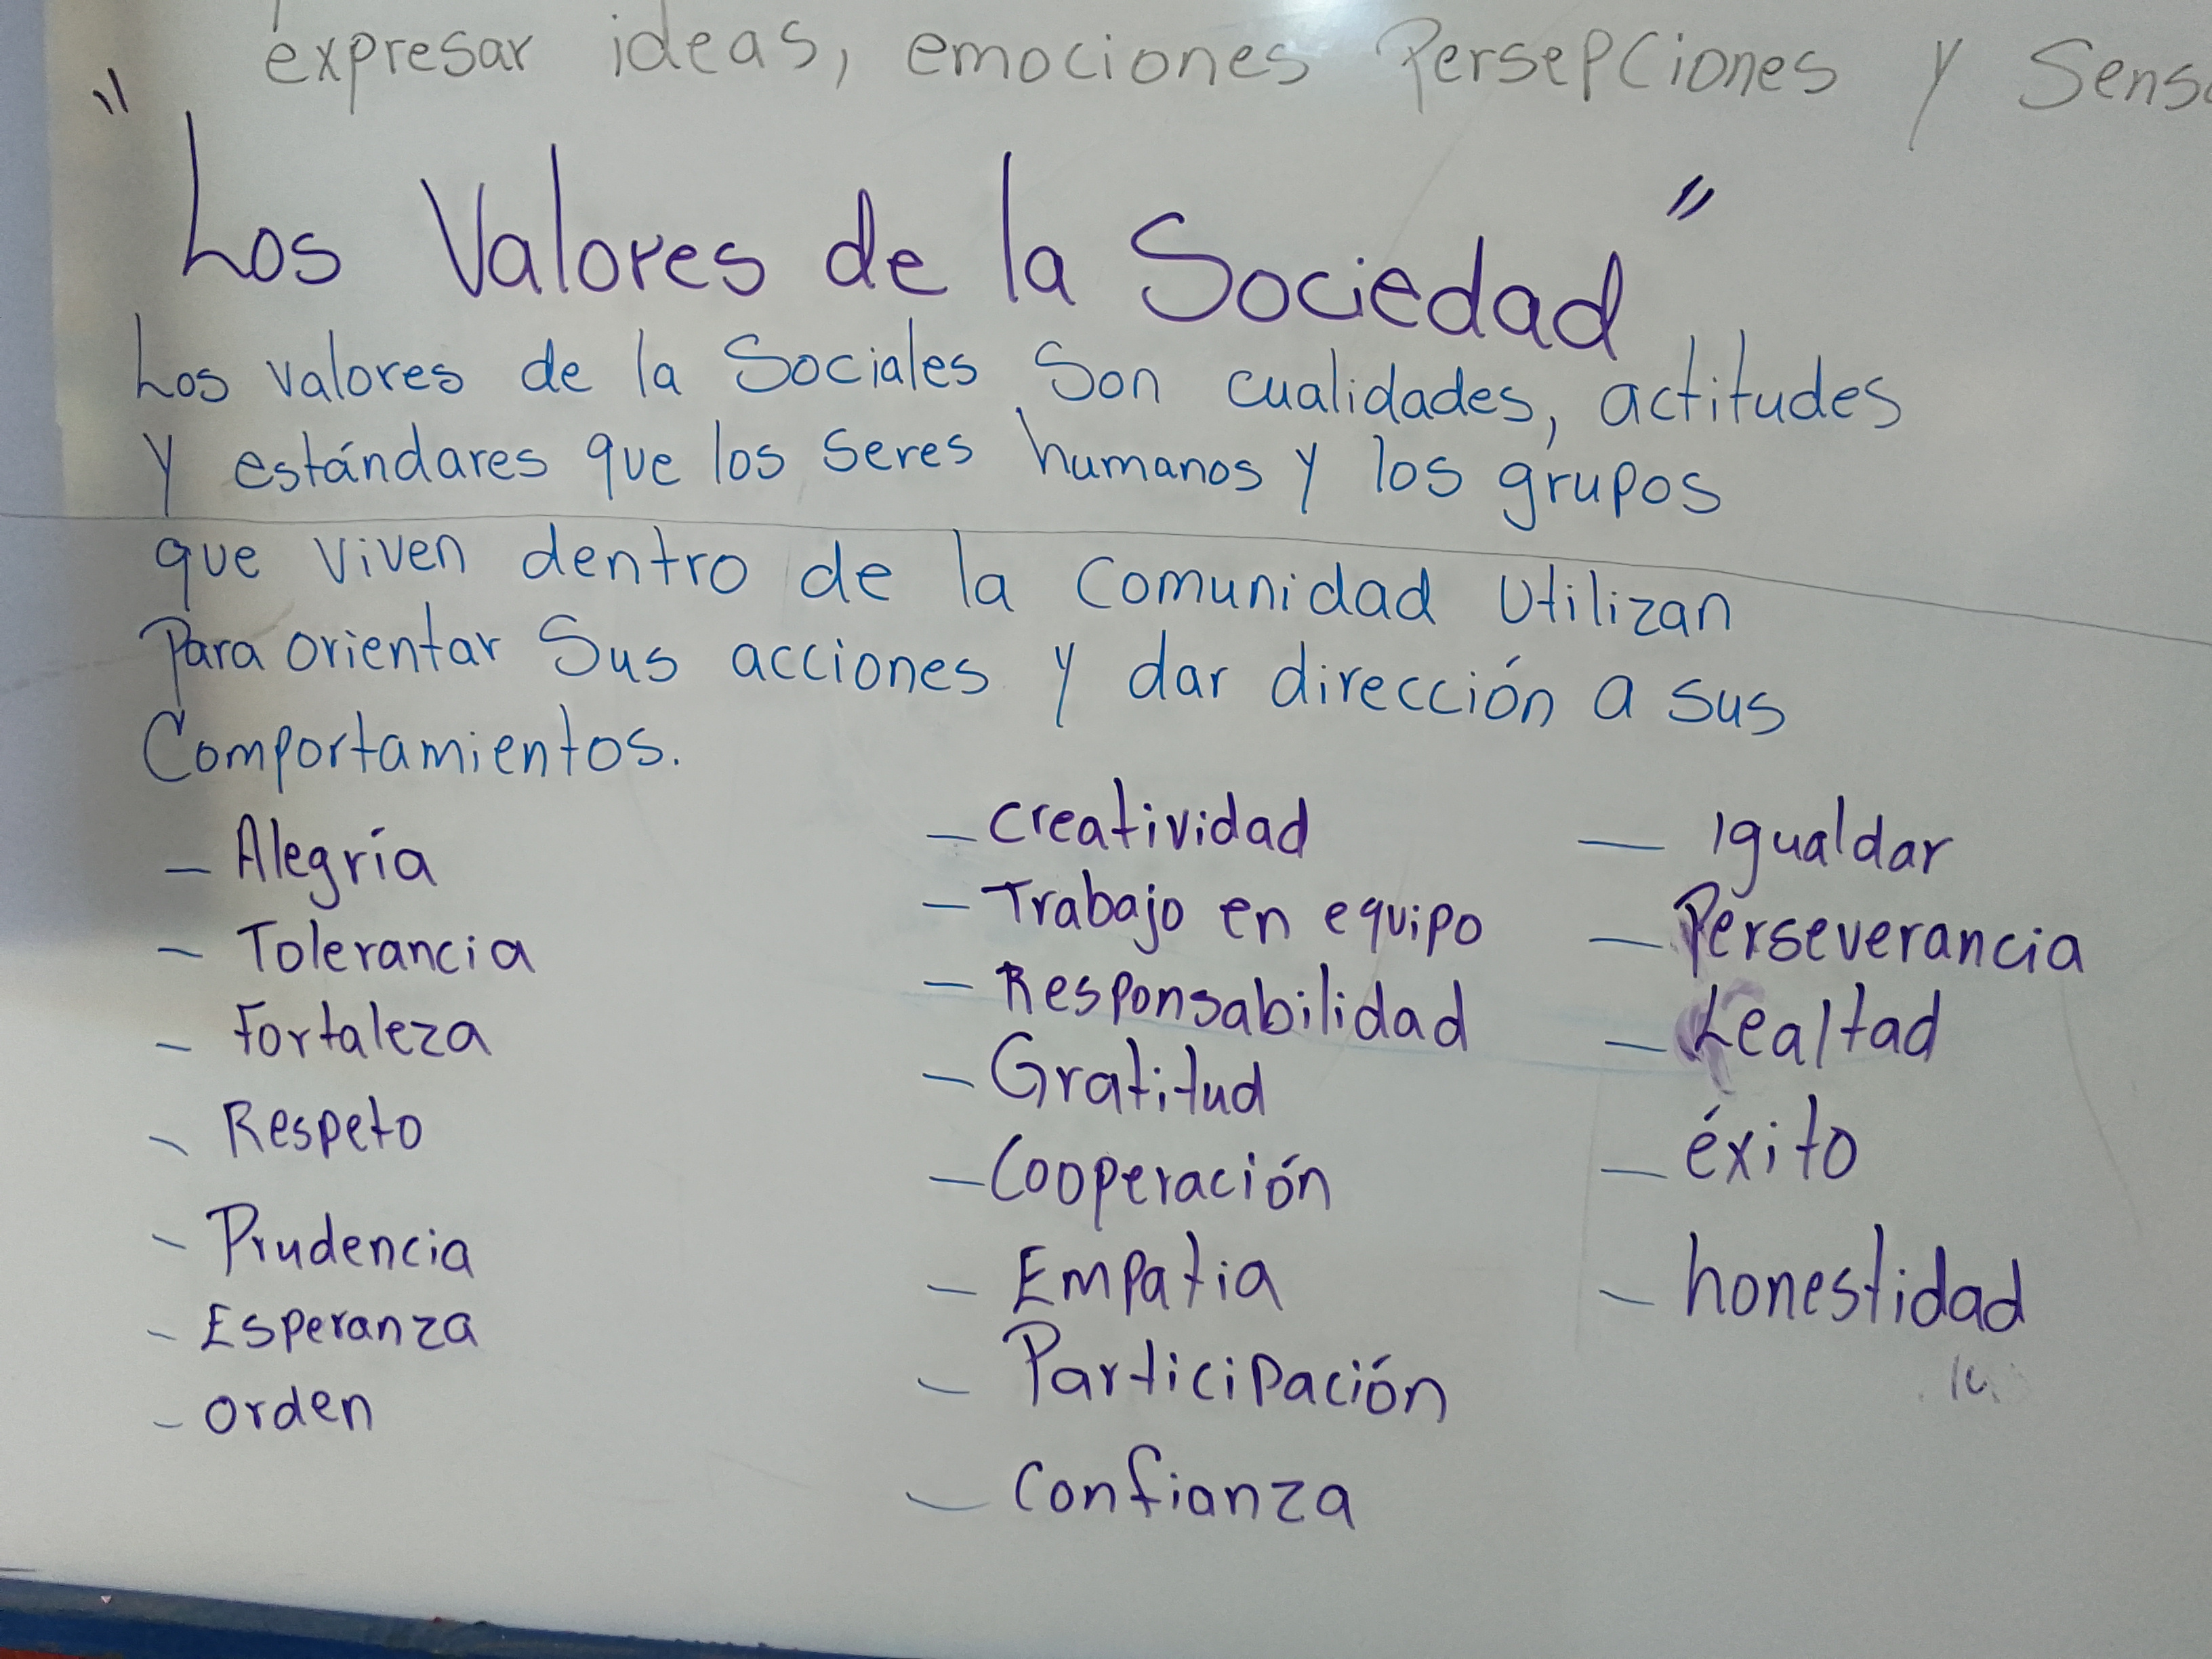 expresar ideas, emociones Persepciones y
"Los Valores de la Sociedad"
Los valores de la Sociales Son cualidades, actitudes
y estándares que los seres humanos y los grupos
que viven dentro de la comunidad utilizan
Para orientar Sus acciones y dar dirección a sus
Comportamientos.
- Alegría
- Tolerancia
- Fortaleza
- Respeto
- Prudencia
- Esperanza
- orden
- creatividad
- Trabajo en equipo
- Responsabilidad
- Gratitud
- Cooperación
- Empatia
- Participación
- confianza
- Igualdar
- Perseverancia
- Lealtad
- éxito
- honestidad